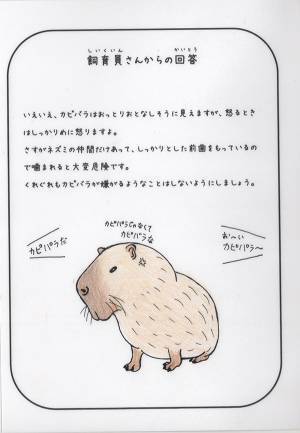 しいくいん かいとう
飼育員さんからの回答
いえいえ、カピバラはおっとりおとなしそうに見えますが、怒るとき
はしっかりめに怒りますよ。
さすがネズミの仲間だけあって、しっかりとした前歯をもっているの
で噛まれると大変危険です。
くれぐれもカピバラが嫌がるようなことはしないようにしましょう。
カピパラじゃなくて
カピバラな
カピパラだ
お〜い
カピパラ〜